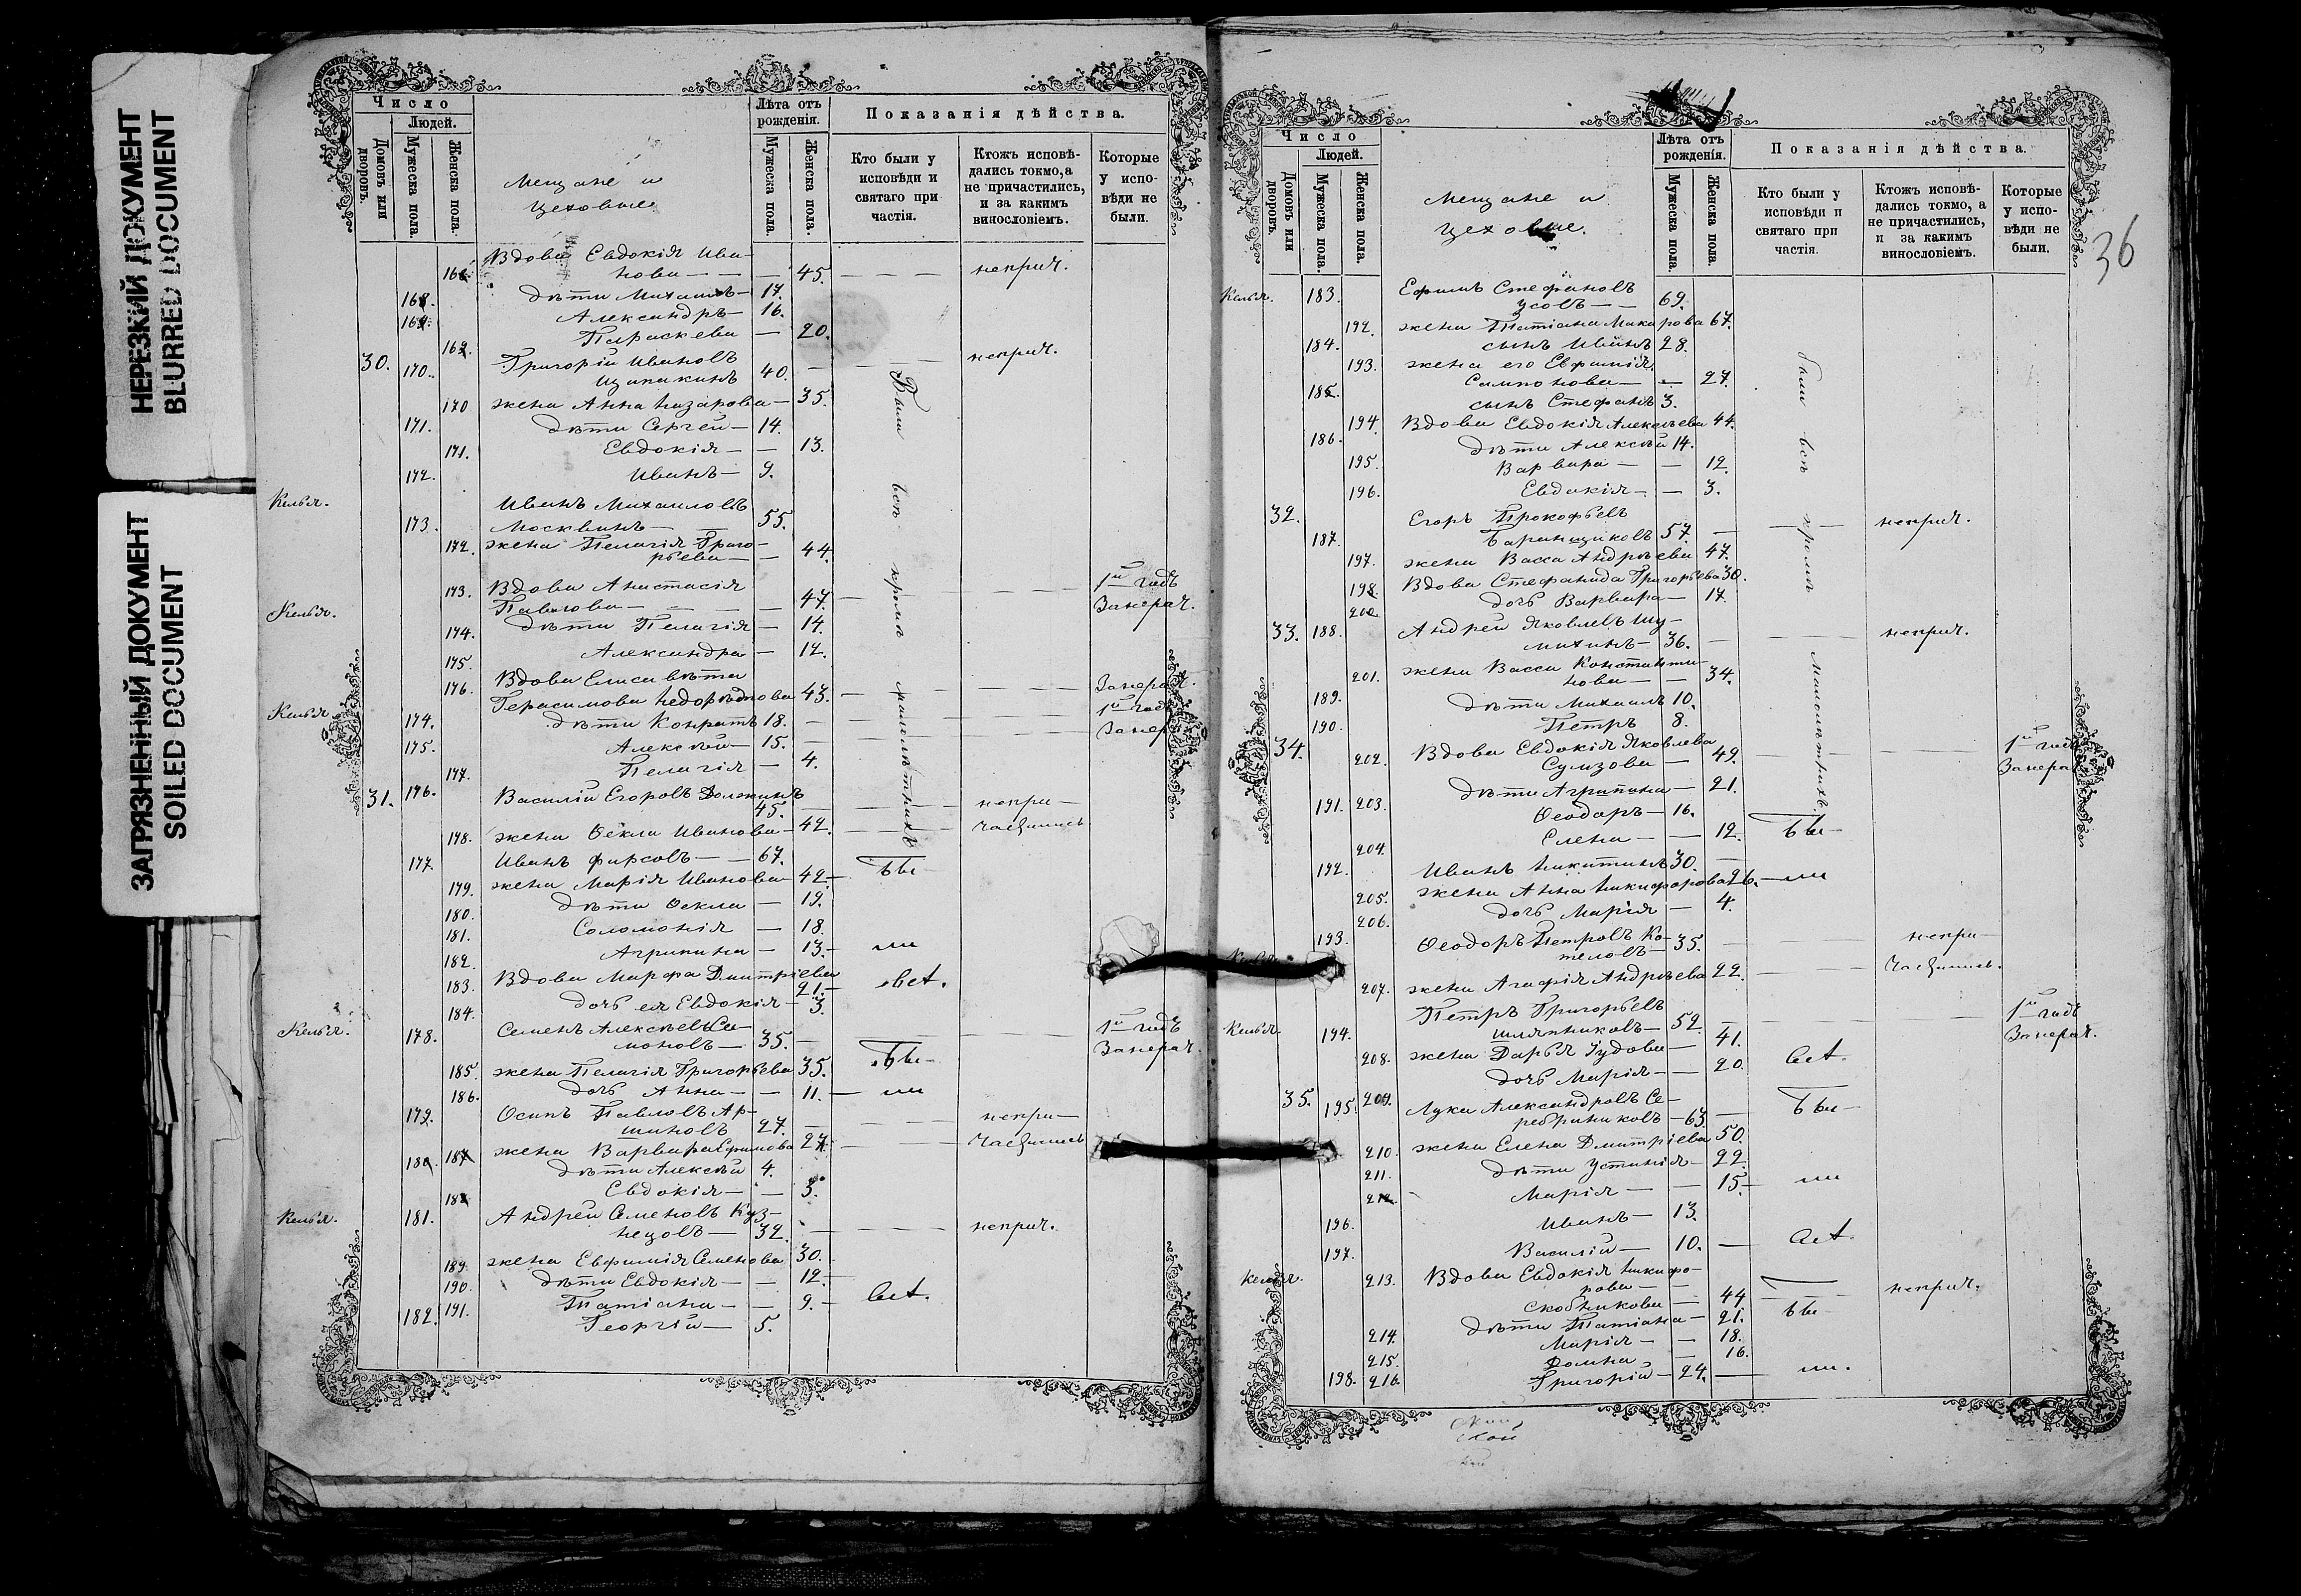 НЕРЕЗКИЙ ДОКУМЕНТ
BLURRED DOCUMENT
ЗАГРЯЗНЕННЫЙ ДОКУМЕНТ
SOILED DOCUMENT
Число
Людей.
Домовъ или дворовъ.
Мужеска пола.
Женска пола.
Мещане и
цеховые
Лѣта отъ рожденія.
Мужеска пола.
Женска пола.
Показанія дѣйства.
Кто были у исповѣди и святаго при частія.
Ктожъ исповѣ- дались токмо, а не причастились, и за какимъ винословіемъ.
Которые у испо- вѣди не были.
Вдова Евдокія Ива-
нова — — — 45. — — — неприч.
168. дѣти Михаилъ — 17.
169. Александръ — 16.
169. Параскева — 20.
30. 170. Григорій Ивановъ
40. — — — неприч.
170 жена Анна Назарова — 35.
171. дѣти Сергей — 14.
171. Евдокія — — 13.
172. Иванъ — 9.
Были всѣ кромѣ малолѣтнихъ
Келья. Иванъ Михаиловъ
173. Москвинъ — — 55.
172. жена Пелагія Григо-
рьева — — 44.
173. Вдова Анастасія 1й годъ
Келья. Павлова — — — — 47. — — — — Заперач.
174. дѣти Пелагія — 14.
175. Александра — 12.
176. Вдова Елисавета
Герасимова 43. — — — —
Келья 174. дѣти Конратъ 18. — 1й годъ
175. Алексѣй — 15. —
177. Пелагія — 4.
31. 176. Василій Егоровъ Должинъ
45. — — — непри—
178. жена Ѳекла Иванова — 42. — — — частились
177. Иванъ Фирсовъ — — 67.
179. жена Марія Иванова — 42 — бы —
180. дѣти Ѳекла — 19.
181. Соломонія — 18.
182. Агрипина — 13. — ли
183. Вдова Марфа Дмитріева
21. — всѣ.
184. дочь ея Евдокія — 3.
Келья. 178. Семенъ Алексѣевъ Си-
моновъ — 35. — — 1й годъ
Заперач.
185. жена Пелагія Григорьева 35. бы —
186. дочь Анна — — 11. — ли
179. Осипъ Павловъ Ар-
шиновъ 27. — — — — непри—
187 жена Варвара Ефимова 27. — — — частились
180. дѣти Алексѣй 4.
188 Евдокія — — 3.
Келья. 181. Андрей Семеновъ Куз-
нецовъ — 32. — — — — неприч.
189. жена Евфимія Семенова 30.
190. дѣти Евдокія — — 12. —
191. Татіана — — 9. — всѣ.
182. Георгій — 5.
36
Число
Людей.
Домовъ или дворовъ.
Мужеска пола.
Женска пола.
Мещане и
цеховые.
Лѣта отъ рожденія.
Мужеска пола.
Женска пола.
Показанія дѣйства.
Кто были у исповѣди и святаго при частія.
Ктожъ исповѣ- дались токмо, а не причастились, и за какимъ винословіемъ.
Которые у испо- вѣди не были.
Келья. 183. Ефимъ Стефановъ
Усовъ — — 69.
192. жена Татіана Макарова 67.
184. сынъ Иванъ 28.
193. жена его Евфимія
Сампонова — — 27.
185. сынъ Стефанъ 3.
были всѣ кромѣ малолѣтнихъ
194. Вдова Евдокія Алексѣева 44.
186. дѣти Алексѣй 14.
195. Варвара — — 12.
196. Евдокія — — 3.
32. Егоръ Прокофьевъ
187. Баранщиковъ 57. — — неприч.
197. жена Васса Андрѣева 47.
198. Вдова Стефанида Григорьева 30.
200. дочь Варвара — 17.
33. 188. Андрей Яковлевъ Шу-
михинъ — 36. — — неприч.
201. жена Васса Константи-
нова — — 34.
189. дѣти Михаилъ 10.
190. Петръ 8.
34. 202. Вдова Евдокія Яковлева
Сумзова — 49. — — — 1й годъ
Заперач
203. дѣти Агрипина — 21.
191. Ѳеодоръ — 16.
204. Елена — — 12. бы —
192. Иванъ Никитинъ 30. —
205. жена Анна Никифорова 26. — ли
206. дочь Марія — 4.
193. Ѳеодоръ Петровъ Ко-
теловъ — 35. — — — непри—
207. жена Агафія Андрѣева 22. — — — частились.
Петръ Григорьевъ 1й годъ
Келья. 194. Шляпниковъ — 52. — — — — Заперач.
208. жена Дарья Іудова — 41.
209. дочь Марія — — 20. всѣ.
35. 195. Лука Александровъ Се-
ребряниковъ — 63. — бы —
210. жена Елена Дмитріева 50.
211. дѣти Устинія — 22.
212. Марія — — 15. — ли
196. Иванъ — 13.
197. Василій — 10. — всѣ.
Келья. 213. Вдова Евдокія Никифо-
рова — —
Скобникова — 44 — — — неприч.
214. дѣти Татіана — 21. бы
215. Марія — — 18.
216. Домна — 16.
198. Григорій — 24. — ли.